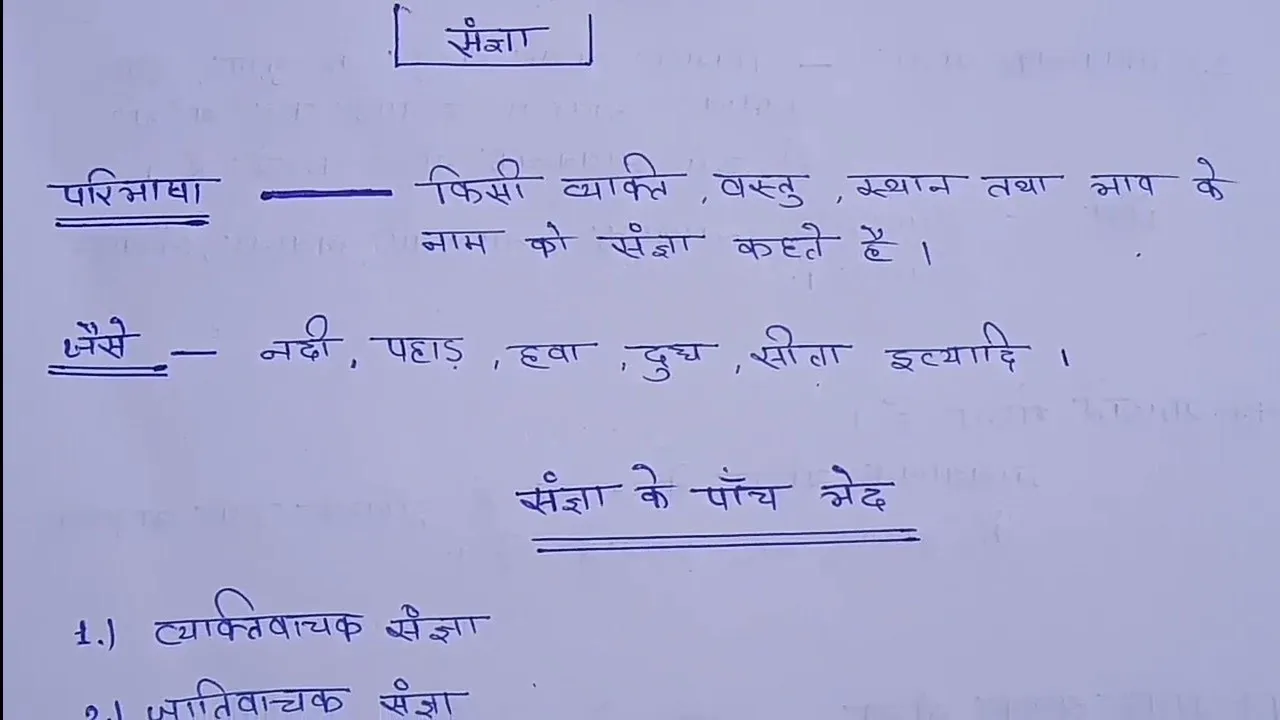 संज्ञा
परिभाषा — किसी व्यक्ति , वस्तु , स्थान तथा भाव के
नाम को संज्ञा कहते है ।
जैसे — नदी , पहाड़ , हवा , दुध , सीता इत्यादि ।
संज्ञा के पाँच भेद
1.) व्यक्तिवाचक संज्ञा
2.) जातिवाचक संज्ञा